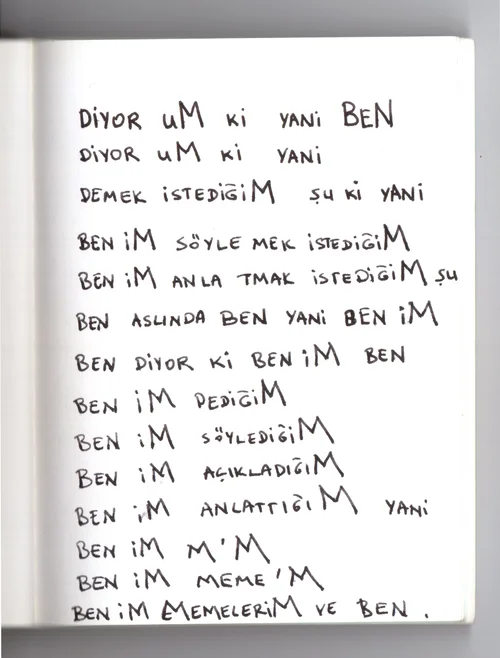 DiYOR uM Ki YANi BEN
DiYOR uM Ki YANi
DEMEK iSTEDiĞiM ŞU Ki YANi
BEN iM SÖYLE MEK iSTEDiĞiM
BEN iM ANLA TMAK iSTEDiĞiM ŞU
BEN ASLINDA BEN YANi BEN iM
BEN DiYOR Ki BEN iM BEN
BEN iM DEDiĞiM
BEN iM SÖYLEDiĞiM
BEN iM AÇIKLADIĞIM
BEN iM ANLATTIĞIM YANi
BEN iM M'M
BEN iM MEME'M
BEN iM MEMELERiM VE BEN .